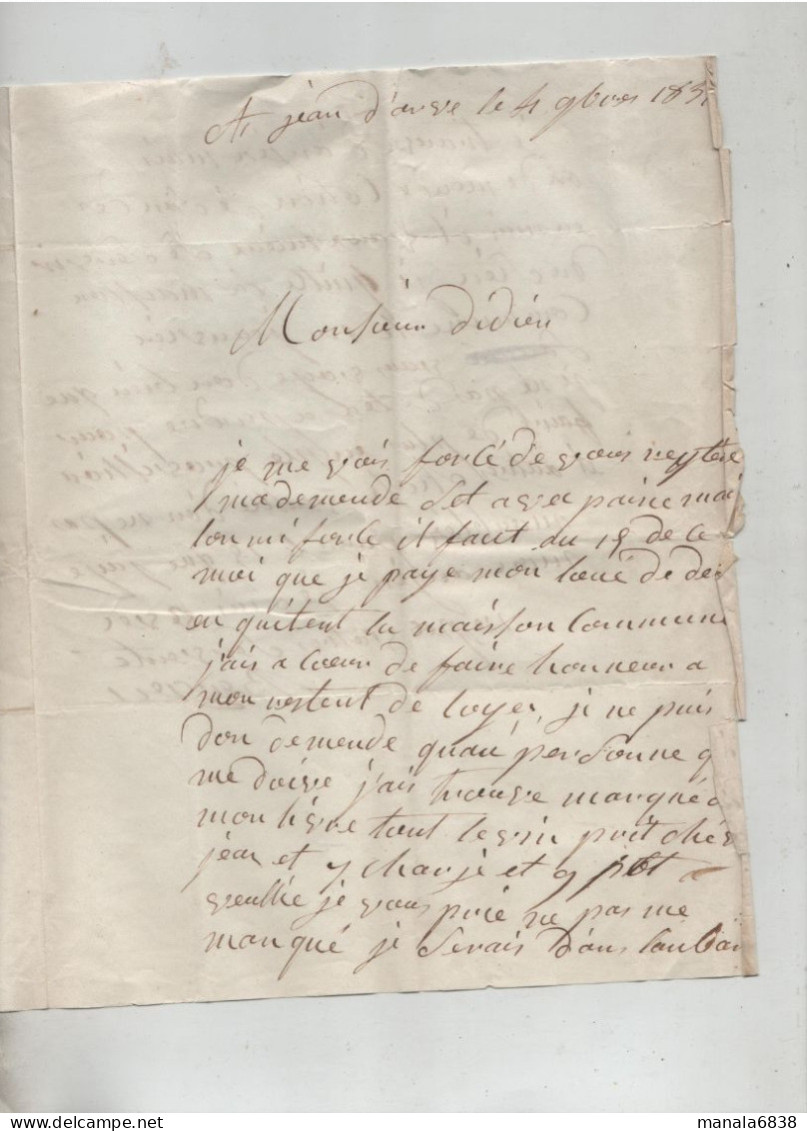 St jean d'arve le 4 9bres 185
Monsieur didier
je me vois forcé de vous reptere
ma demende set avec paine mai
lon mi force il faut au 15 de ce
moi que je paye mon loué de der
en quitent la maisson commune
jais a coeur de faire honneur a
mon restent de loyer, je ne puis
don demende quau personne q
me doive j'ais trouve marqué a
mon livre tout le vin prit chés
jean et 7 charje et 9 pot a
veullié je vous prie ne pas me
manqué je serais dans lanbar
manala6838